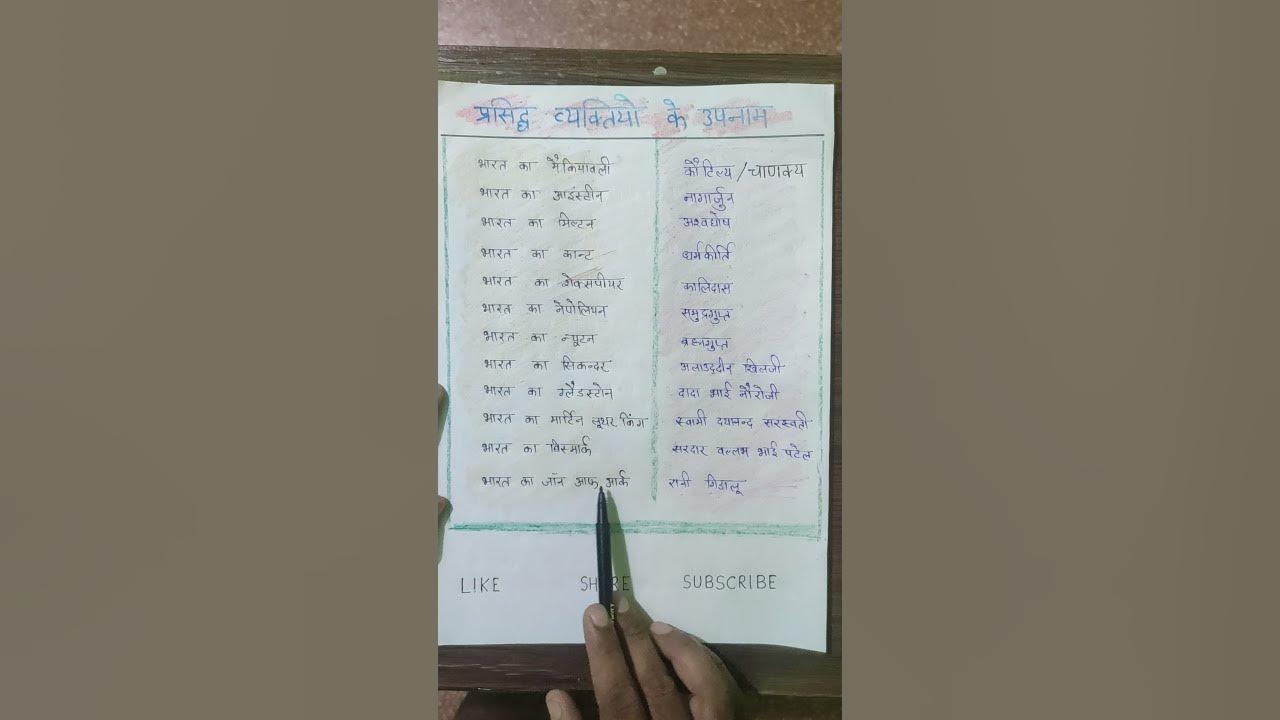 प्रसिद्ध व्यक्तियों के उपनाम
भारत का मैकियावली कौटिल्य / चाणक्य
भारत का आइंस्टीन नागार्जुन
भारत का मिल्टन अश्वघोष
भारत का कान्ट धर्मकीर्ति
भारत का शेक्सपीयर कालिदास
भारत का नेपोलियन समुद्रगुप्त
भारत का न्यूटन ब्रह्मगुप्त
भारत का सिकन्दर अलाउद्दीन खिलजी
भारत का ग्लैडस्टोन दादा भाई नौरोजी
भारत का मार्टिन लूथर किंग स्वामी दयानन्द सरस्वती
भारत का बिस्मार्क सरदार वल्लभ भाई पटेल
भारत का जॉन आफ आर्क रानी गिडालू
LIKE SHARE SUBSCRIBE